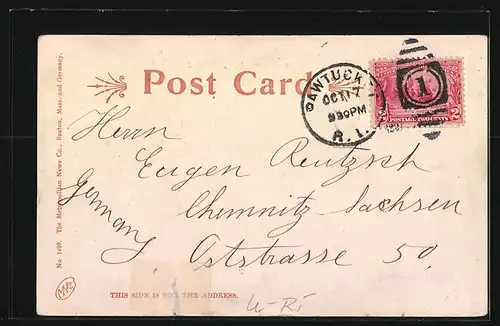 Post Card
PAWTUCKET
OCT 17
930PM
R. I.
1
2 2
POSTAGE TWO CENTS
Herrn
Eugen Reutzsch
Chemnitz-Sachsen
Germany
Oststrasse 50
No. 1499. The Metropolitan News Co., Boston, Mass. and Germany.
THIS SIDE IS FOR THE ADDRESS.